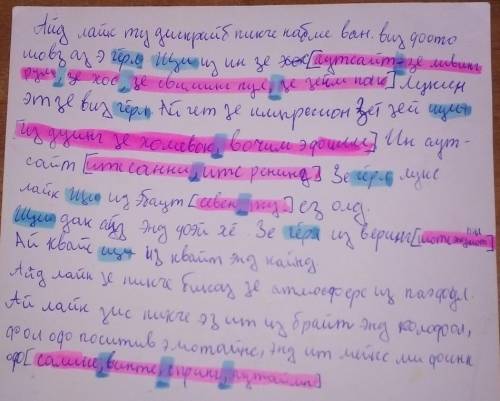 Айд лайк ту дискрайб пикче намбе ван. виз фото
шовз аз э гёрл Щи из ин зе [аутсайт, зе ливинг
рум, зе хос, зе свиминг пул, зе зенм парк] Лукин
эт зе виз гёрл Ай гет зе импрессион зет зей щи
[из дуинг зе холевок, вочим э фоший] Ин аут-
сайт [итс санни, итс ренинд] Зе гёрл лукс
лайк Щи из эбаут [севен, ту] ез олд.
Щи дак айз энд фэй хе. Зе гёрл из веринг
Ай квайт щи из квайт энд кайнд
Айд лайк зе пикче бикоз зе атмосфере из паэфул.
Ай лайк зис пикче эз ит из брайт энд колофол,
фол офо поситив эмотайнс, энд ит мейкс ми финк
оф [самме, винте, спринг, аутайм]